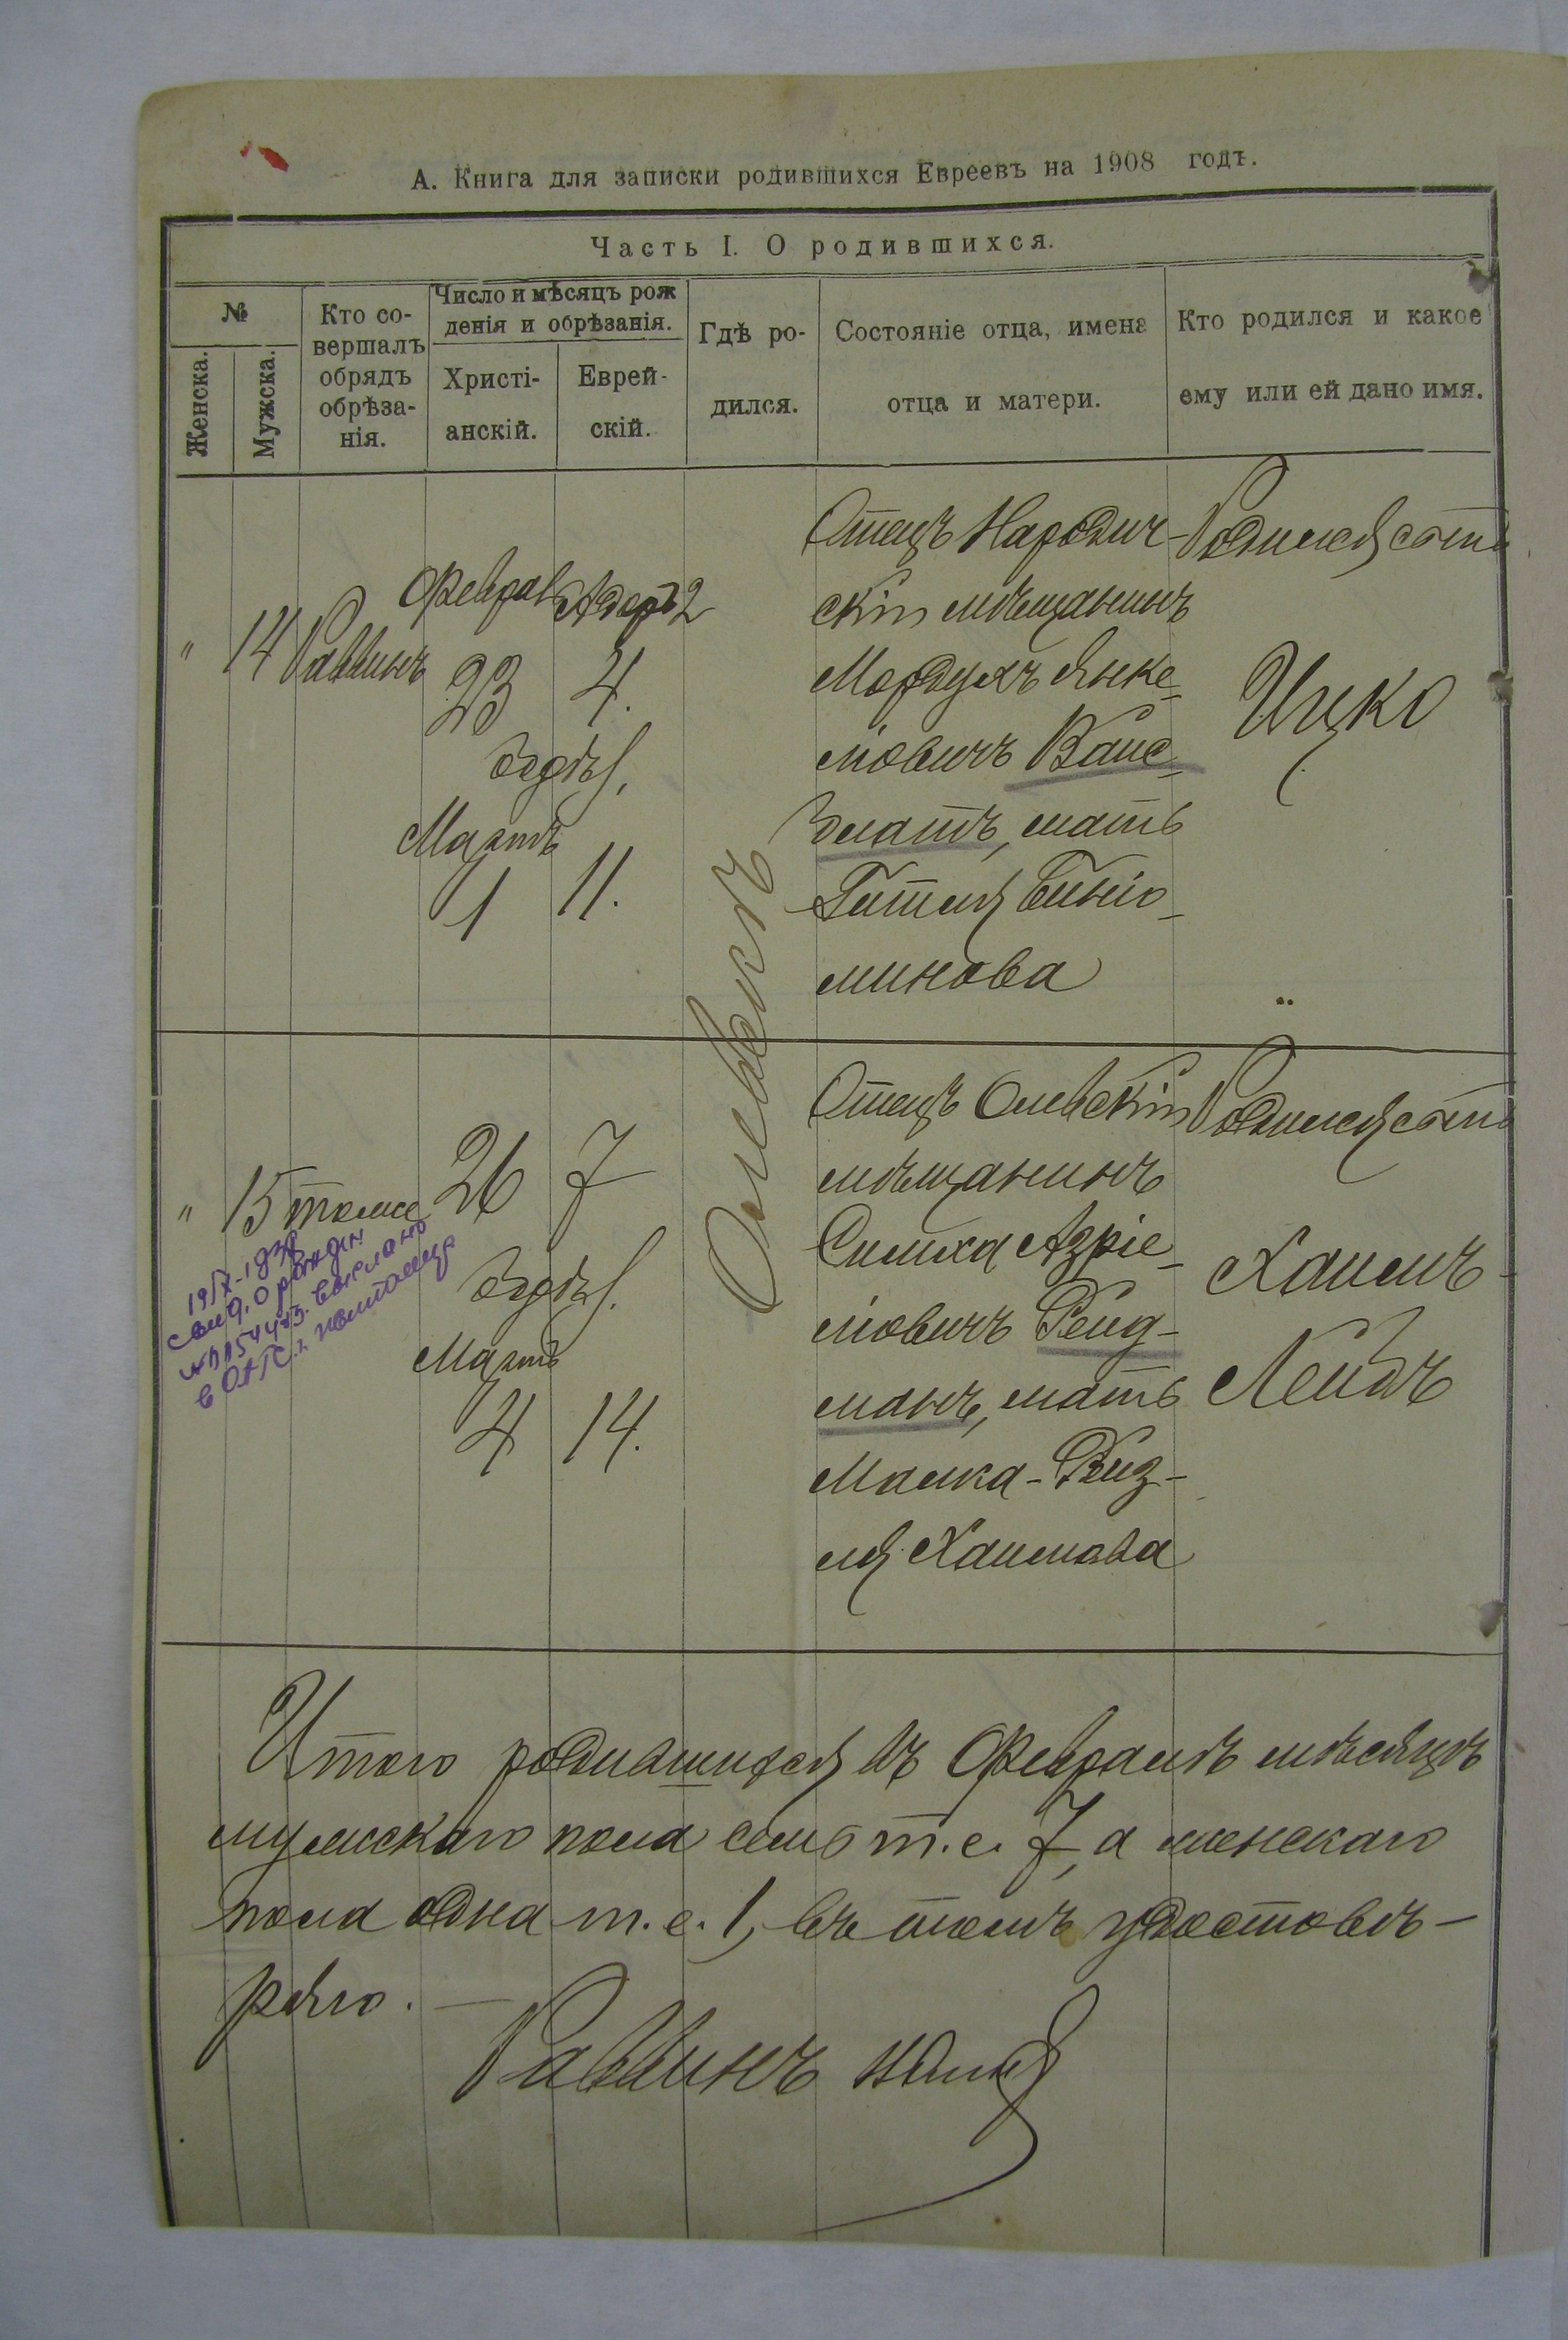 А. Книга для записки родившихся Евреевъ на 1908 годъ.
Часть I. О родившихся.
№
Женска.
Мужска.
Кто со-
вершалъ
обрядъ
обрѣза-
нія.
Число и мѣсяцъ рож
денія и обрѣзанія.
Христі-
анскій.
Еврей-
скій.
Гдѣ ро-
дился.
Состояніе отца, имена
отца и матери.
Кто родился и какое
ему или ей дано имя.
" 14 Раввинъ
Феврал Адаръ 2
23 4.
обрѣз.
Мартъ
1 11.
Олевскѣ
Отецъ Народич-
скій мѣщанинъ
Мордухъ Янке-
лiовичъ Ваис-
блатъ, мать
Гитля Бенiо-
минова
Родился сынъ
Ицко
" 15 тоже 26 7
обрѣз.
Мартъ
4 14.
19/X-1938
свид. о рожден
выслано
в
Отецъ Олевскій
мѣщанинъ
Симха Азріе-
лiовичъ Феид-
манъ, мать
Малка-Реиз-
ля Хаимова
Родился сынъ
Хаимъ-
Леибъ
Итого родившихся въ Февралѣ мѣсяцѣ
мужскаго пола семь т.е. 7, а женскаго
пола одна т.е. 1, въ томъ удостовѣ-
ряю.
Раввинъ